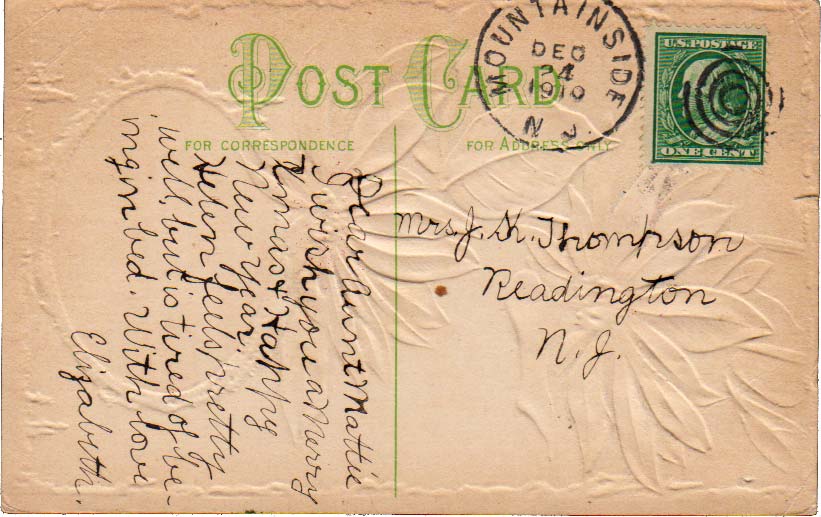 POST CARD
FOR CORRESPONDENCE
FOR ADDRESS ONLY
MOUNTAINSIDE
DEC
24
1910
N J.
U.S. POSTAGE
ONE CENT
Dear Aunt Mattie
I wish you a Merry
Xmas & Happy
New Year.
Helen feels pretty
well, but is tired of be-
ing in bed. With love
Elizabeth.
Mrs. J. K. Thompson
Readington
N. J.